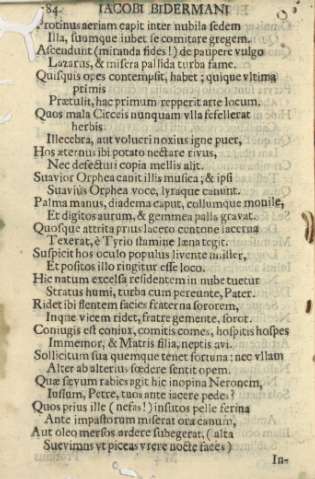 84 IACOBI BIDERMANI
Protinus aeriam capit inter nubila sedem
Illa, suumque iubet se comitare gregem.
Ascendunt (miranda fides!) de paupere vulgo
Lazarus, & misera pallida turba fame.
Quisquis opes contempsit, habet; quique vltima
primis
Prætulit, hac primum repperit arte locum.
Quos mala Circeis nunquam vlla fefellerat
herbis
Illecebra, aut volucri noxius igne puer,
Hos æternus ibi potato nectare rivus,
Nec defecturi copia mellis alit.
Suavior Orphea canit illis musica; & ipsi
Suaviùs Orphea voce, lyraque canunt.
Palma manus, diadema caput, collumque monile,
Et digitos aurum, & gemmea palla gravat.
Quosque attrita prius lacero centone lacerna
Texerat, è Tyrio stamine læna tegit.
Suspicit hos oculo populus livente miser,
Et positos illo ringitur esse loco.
Hic natum excelsa residentem in nube tuetur
Stratus humi, turba cum pereunte, Pater.
Ridet ibi flentem facies fraterna sororem,
Inque vicem ridet, fratre gemente, soror.
Coniugis est coniux, comitis comes, hospitis hospes
Immemor, & Matris filia, neptis avi.
Sollicitum sua quemque tenet fortuna: nec vllam
Alter ab alterius fœdere sentit opem.
Quæ sævum rabies agit hic inopina Neronem,
Iussum, Petre, tuos ante iacere pedes?
Quos prius ille (nefas!) insutos pelle ferina
Ante impastorum miserat ora canum,
Aut oleo mersos ardere subegerat, (alta
Suevimus vt piceas vrere nocte faces)
In-